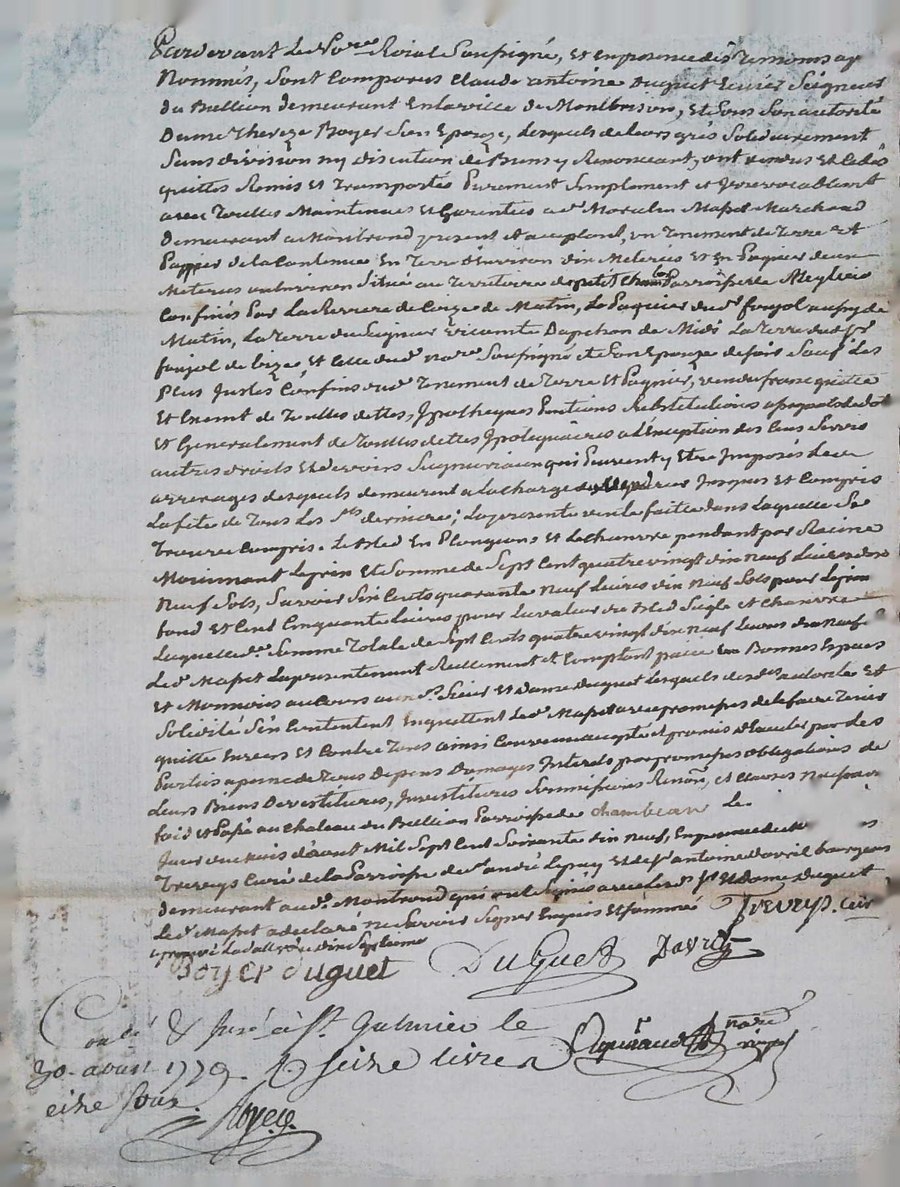 Pardevant Le No.re Roial Soussigné, et en presence des Temoins ap
Nommés, sont Comparus Claude antoine Duguet Ecuier Seigneur
du Bullion demeurant En la ville de Montbrison, et sous son autorité
Dame Thereze Boyer son Epouze, Lesquels de leurs grés solidairement
sans division ny discution de Biens y Renonceant, ont vendus et Cedés
quittes Remis et Transportés Purement simplement et irrevocablemt
avec Touttes Maintenues et Garenties a Sr Mapet Marchand
demeurant a Montrond present et acceptant, un Tenement de Terre et
Paquier de la Contenue En Terre d'Environ dix Meterées et En Paquier deux
Meterées ou Environ situé au Territoire de petit Champ Parroisse de Meylieu
Confinés Par La Riviere de Coize de Matin, Le Paquier du Sr foujol aussy de
Matin, La Terre du Seigneur vicomte Dapchon de Midi La Terre dud. Sr
foujol de bize, et Celle dud. no.re Soussigné et son Epouze de soir sauf Les
Plus Justes Confins dud. Tenement de Terre et Paquier, vendu franc quitte
Et Exemt de Touttes dettes, Ipotheques Evictions substitutions
Et Generalement de Touttes dettes Ipotequaires a L'Exception des Cens Servis
autres droits Et devoirs Seigneuriaux qui Peuvent y Etre Imposés
arrerages desquels demeurent a la charge Jusques et Compris
La fête de Tous Les Sts derniere; La presente vente faite dans Laquelle se
Trouve Compris. Le bled En Plongeons et Le chanvre pendant par Racine
Moiennant Le prix Et Somme de Sept Cent quatre vingt dix neuf Livres dix
Neuf sols, Savoir six Cents quarante Neuf Livres dix Neuf sols pour Le prix
fond et Cent Cinquante Livres pour La valeur du bled siegle et chanvre
Laquelle de. Somme Totale de Sept Cents quatre vingt dix neuf Livres dix neuf
Le d. Mapet La presentement Reellement et Comptant paiée En Bonnes Espèces
et Monnoies au Cours aux d. Sieur et Dame Duguet Lesquels de d. autorité et
Solidité S'en Contentent En quittent Le d. Mapet avec promesses de Le faire Tenir
quitte Envers Et Contre Tous ainsi Convenu accepté et promis d'Executer par Les
Parties a peine de Tous Depens Domages Interets par promesses obligations de
Leurs Biens Devestitures, Investitures Soumissions Renon, et Clauses
fait et Passé au Chateau du Bullion Parroisse de chambeau Le
Jour du mois d'aout Mil Sept Cent Soixante dix neuf, En presence de
Treveys Curé de La Parroisse de St andré Le puy Et de Sr antoine davril bourgeois
demeurant aud. Montrond qui ont signés avec Les d. Sr Et Dame Duguet
Le d. Mapet a declaré ne Savoir Signer Enquis et sommé Treveys. Curé
Boyer duguet Duguet Davril
Con.lé & Insé à St. Galmier le
30. aoust 1779. R seize livres
seize sous.